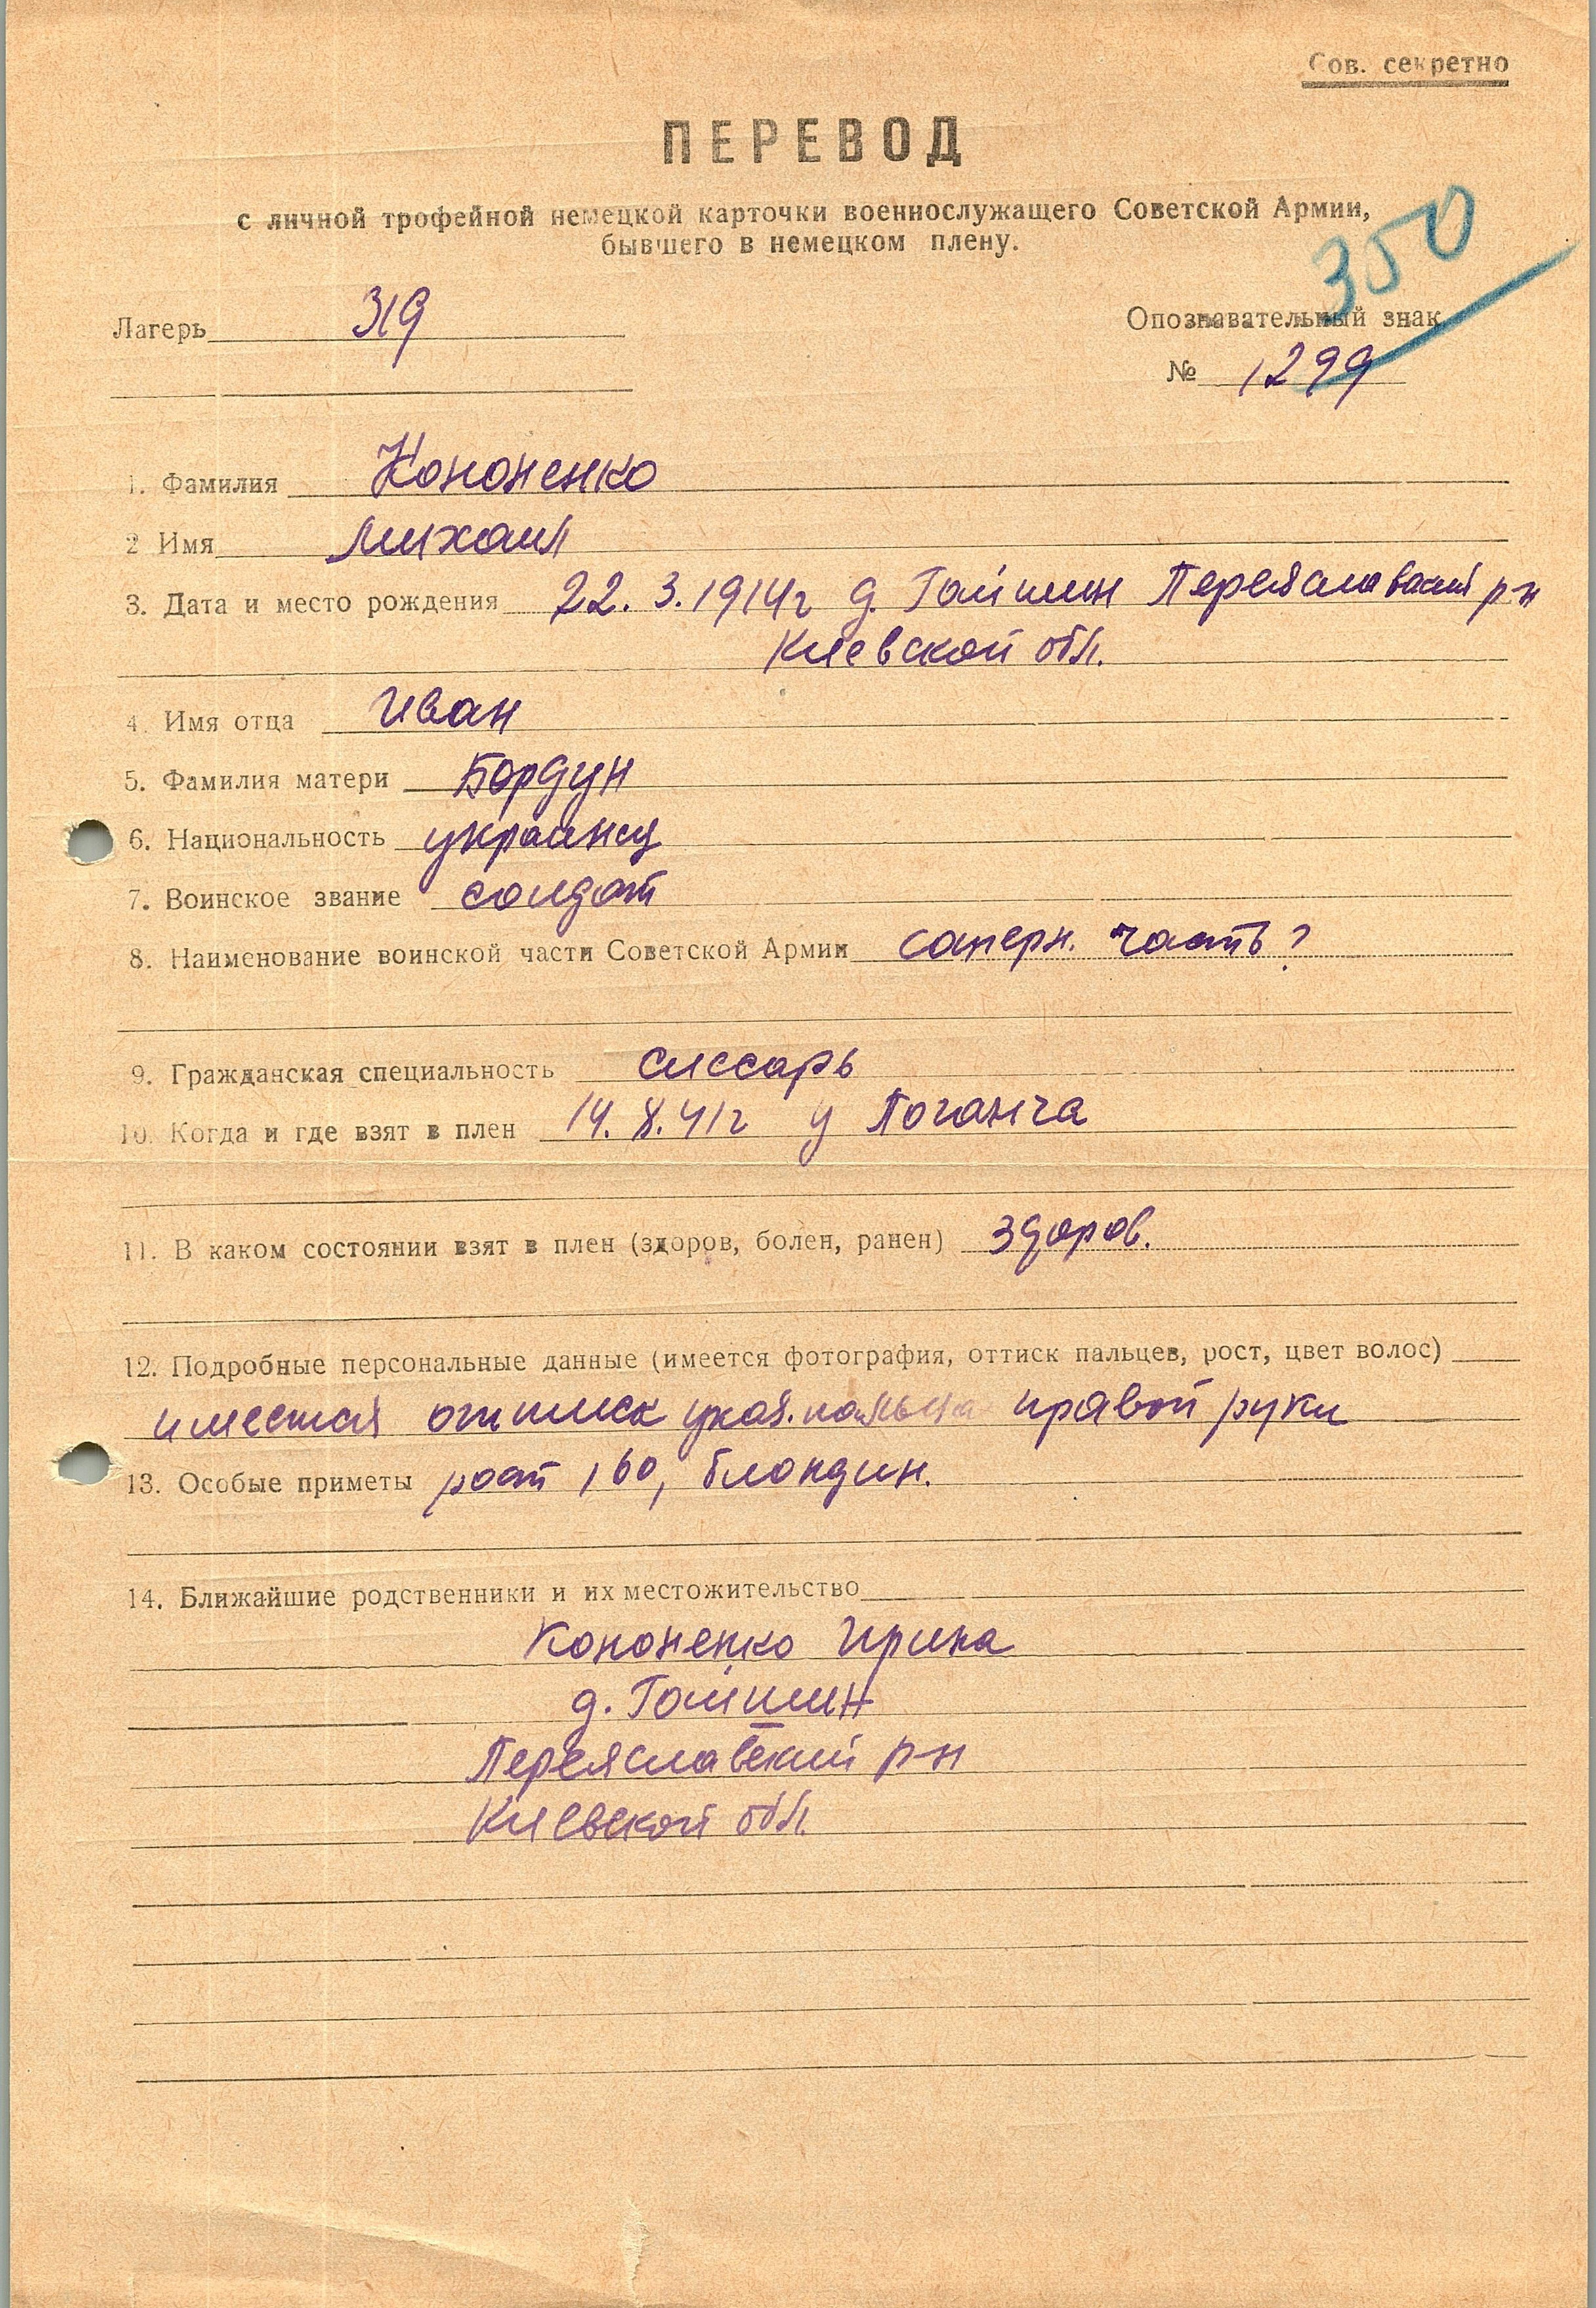 Сов. секретно
ПЕРЕВОД
с личной трофейной немецкой карточки военнослужащего Советской Армии,
бывшего в немецком плену.
350
Лагерь 319
Опознавательный знак
№ 1299
1. Фамилия Кононенко
2 Имя Михаил
3. Дата и место рождения 22.3.1914г д. Гайшин Переяславский р-н
Киевской обл.
4. Имя отца Иван
5. Фамилия матери Бордун
6. Национальность украинец
7. Воинское звание солдат
8. Наименование воинской части Советской Армии саперн. часть?
9. Гражданская специальность слесарь
10. Когда и где взят в плен 14.8.41г у Поганча
11. В каком состоянии взят в плен (здоров, болен, ранен) здоров.
12. Подробные персональные данные (имеется фотография, оттиск пальцев, рост, цвет волос)
имеется оттиск указ. пальца правой руки
13. Особые приметы рост 160, блондин.
14. Ближайшие родственники и их местожительство
Кононенко Ирина
д. Гайшин
Переяславский р-н
Киевской обл.